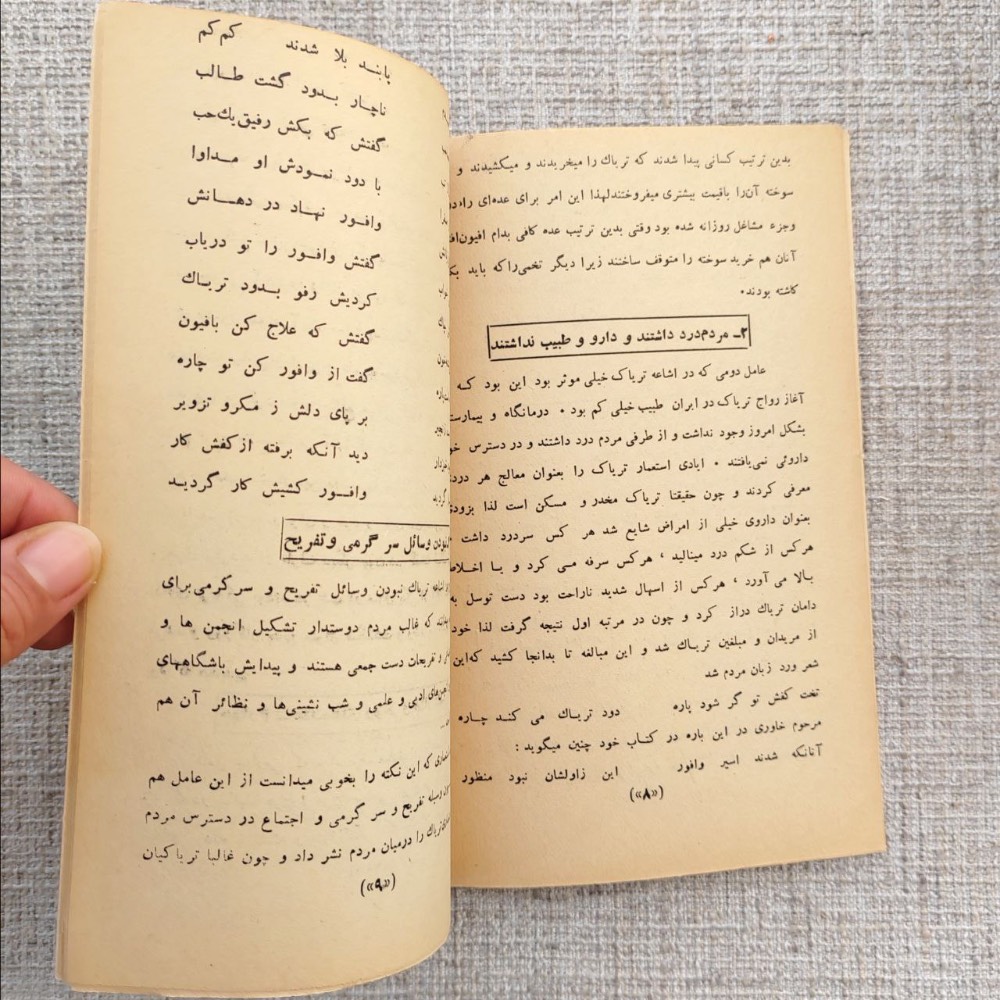 بدین ترتیب کسانی پیدا شدند که تریاك را میخریدند و میکشیدند و
سوخته آن‌را باقیمت بیشتری میفروختند لهذا این امر برای عده‌ای
وجزء مشاغل روزانه شده بود وقتی بدین ترتیب عده کافی بدام
آنان هم خرید سوخته را متوقف ساختند زیرا دیگر تخمی‌راکه باید
کاشته بودند.
۲ـ مردم درد داشتند و دارو و طبیب نداشتند
عامل دومی که در اشاعه تریاک خیلی موثر بود این بود که
آغاز رواج تریاک در ایران طبیب خیلی کم بود. درمانگاه و
بشکل امروز وجود نداشت و از طرفی مردم درد داشتند و در دسترس
داروئی نمی‌یافتند. ایادی استعمار تریاک را بعنوان معالج هر
معرفی کردند و چون حقیقتا تریاک مخدر و مسکن است لذا بزودی
بعنوان داروی خیلی از امراض شایع شد هر کس سردرد داشت
هرکس از شکم درد مینالید، هرکس سرفه می کرد و یا
بالا می آورد، هرکس از اسهال شدید ناراحت بود دست توسل به
دامان تریاك دراز کرد و چون در مرتبه اول نتیجه گرفت لذا خود
از مریدان و مبلغین تریاك شد و این مبالغه تا بدانجا کشید که این
شعر ورد زبان مردم شد
تخت کفش تو گر شود پاره دود تریاك می کند چاره
مرحوم خاوری در این باره در کتاب خود چنین میگوید :
آنانکه شدند اسیر وافور این زاولشان نبود منظور
(«۸»)
پابند بلا شدند کم کم
ناچار بدود گشت طالب
گفتش که بکش رفیق یك حب
با دود نمودش او مداوا
وافور نهاد در دهانش
گفتش وافور را تو دریاب
کردیش رفو بدود تریاك
گفتش که علاج کن بافیون
گفت از وافور کن تو چاره
بر پای دلش ز مکرو تزویر
دید آنکه برفته از کفش کار
وافور کشیش کار گردید
نبودن وسائل سر گرمی و تفریح
اشاعه تریاك نبودن وسائل تفریح و سرگرمی برای
که غالب مردم دوستدار تشکیل انجمن ها و
و تفریحات دست جمعی هستند و پیدایش باشگاههای
ادبی و علمی و شب نشینی‌ها و نظائر آن هم
که این نکته را بخوبی میدانست از این عامل هم
وسیله تفریح و سر گرمی و اجتماع در دسترس مردم
را درمیان مردم نشر داد و چون غالبا تریاکیان
(«۹»)